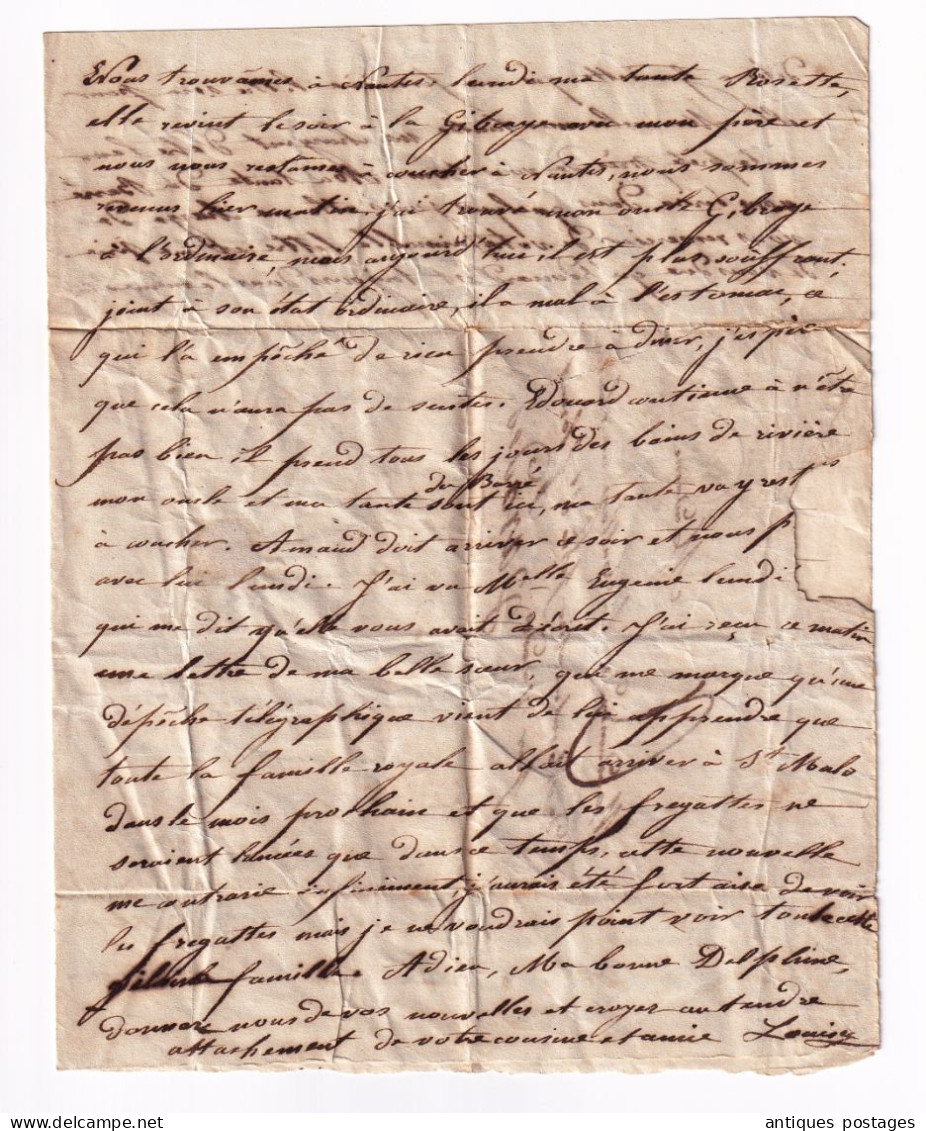 Nous trouvâmes à Nantes lundi ma tante Rosette,
elle revint le soir à la Gibraye avec mon père et
nous nous restâmes à coucher à Nantes, nous sommes
revenus hier matin, j'ai trouvé mon oncle Gibraye
à l'ordinaire, mais aujourd'hui il est plus souffrant.
joint à son état ordinaire, il a mal à l'estomac, ce
qui l'a empêché de rien prendre à diner, j'espère
que cela n'aura pas de suites. Edouard continue à n'être
pas bien il prend tous les jours des bains de rivière
du Barré
mon oncle et ma tante sont ici, ma tante va y rest
à coucher. Amand doit arriver ce soir et nous p
avec lui lundi. J'ai vu Melle Eugenie lundi
qui me dit qu'elle vous avait écrit. J'ai reçu ce matin
une lettre de ma belle sœur, qui me marque qu'une
dépêche télégraphique vient de lui apprendre que
toute la famille royale allait arriver à St Malo
dans le mois prochain et que les fregattes ne
seraient lancées que dans ce temps, cette nouvelle
me contrarie infiniment, j'aurais été fort aise de voir
les fregattes mais je ne voudrais point voir toute cette
famille Adieu, Ma bonne Delphine,
donnez nous de vos nouvelles et croyez au tendre
attachement de votre cousine et amie Louise
antiques postages